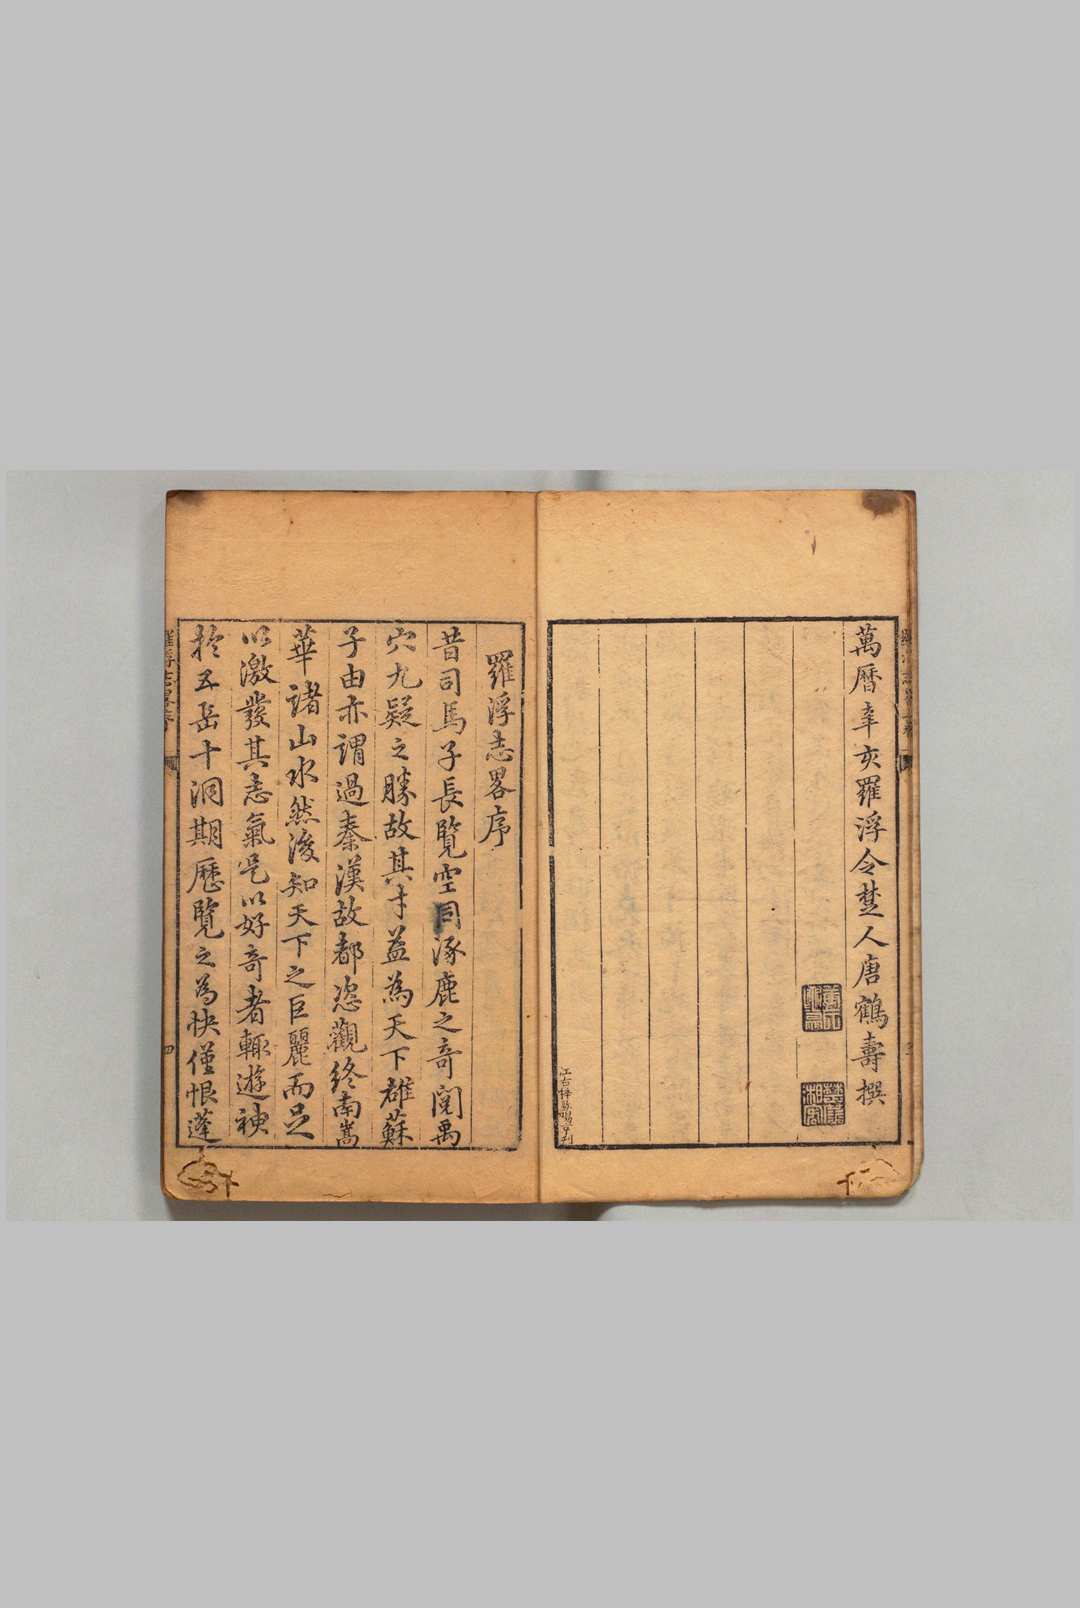 萬曆辛亥羅浮令楚人唐鶴壽撰
羅浮志畧序
昔司馬子長覽空同涿鹿之奇闚禹
穴九疑之勝故其才益為天下雄蘇
子由亦謂過秦漢故都恣觀終南嵩
華諸山水然後知天下之巨麗而足
以激發其志氣是以好奇者輒遊神
於五岳十洞期歷覽之為快僅恨蓬
四